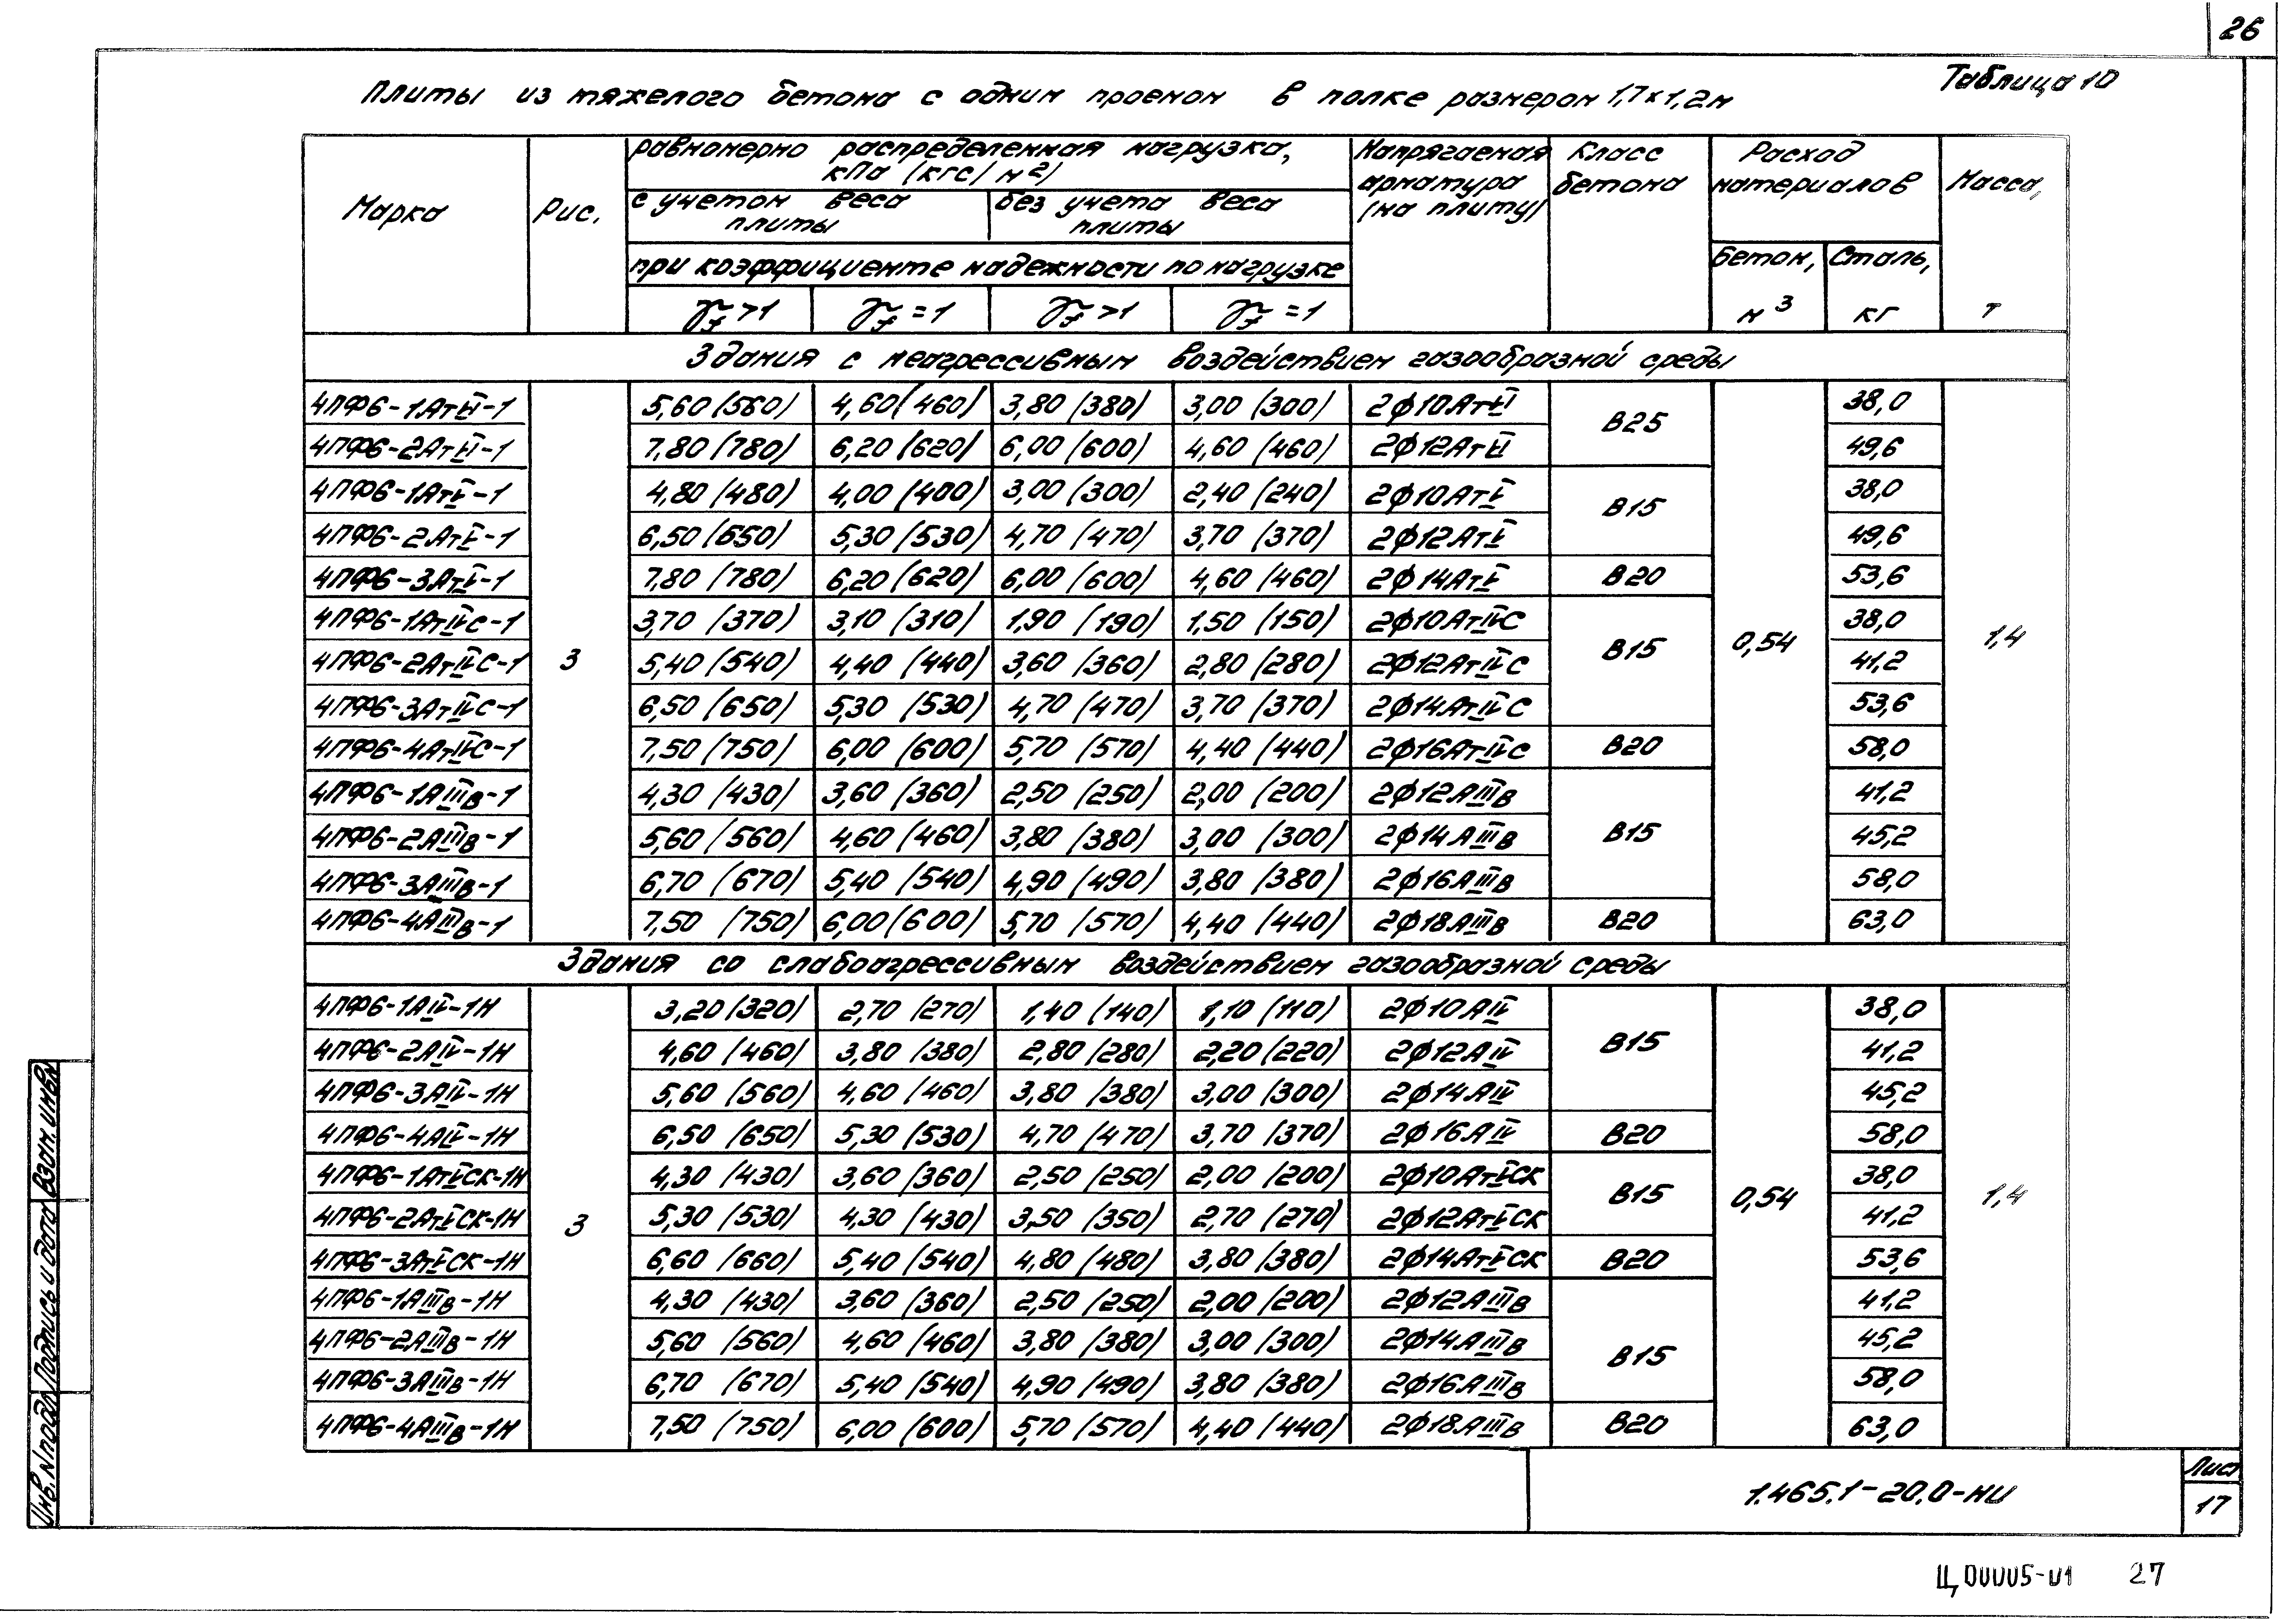 26
Таблица 10
Плиты из тяжелого бетона с одним проемом в полке размером 1,7×1,2м
Марка | Рис. | равномерно распределенная нагрузка, кПа (кгс/м²) | Напрягаемая арматура (на плиту) | Класс бетона | Расход материалов | Масса, т
с учетом веса плиты | без учета веса плиты
при коэффициенте надежности по нагрузке | Бетон, м³ | Сталь, кг
γf >1 | γf =1 | γf >1 | γf =1
Здания с неагрессивным воздействием газообразной среды
4ПФ6-1АтVI-1 | 3 | 5,60 (560) | 4,60 (460) | 3,80 (380) | 3,00 (300) | 2ф10АтVI | В25 | 0,54 | 38,0 | 1,4
4ПФ6-2АтVI-1 | 7,80 (780) | 6,20 (620) | 6,00 (600) | 4,60 (460) | 2ф12АтVI | 49,6
4ПФ6-1АтV-1 | 4,80 (480) | 4,00 (400) | 3,00 (300) | 2,40 (240) | 2ф10АтV | В15 | 38,0
4ПФ6-2АтV-1 | 6,50 (650) | 5,30 (530) | 4,70 (470) | 3,70 (370) | 2ф12АтV | 49,6
4ПФ6-3АтV-1 | 7,80 (780) | 6,20 (620) | 6,00 (600) | 4,60 (460) | 2ф14АтV | В20 | 53,6
4ПФ6-1АтIVС-1 | 3,70 (370) | 3,10 (310) | 1,90 (190) | 1,50 (150) | 2ф10АтIVС | В15 | 38,0
4ПФ6-2АтIVС-1 | 5,40 (540) | 4,40 (440) | 3,60 (360) | 2,80 (280) | 2ф12АтIVС | 41,2
4ПФ6-3АтIVС-1 | 6,50 (650) | 5,30 (530) | 4,70 (470) | 3,70 (370) | 2ф14АтIVС | 53,6
4ПФ6-4АтIVС-1 | 7,50 (750) | 6,00 (600) | 5,70 (570) | 4,40 (440) | 2ф16АтIVС | В20 | 58,0
4ПФ6-1АIIIв-1 | 4,30 (430) | 3,60 (360) | 2,50 (250) | 2,00 (200) | 2ф12АIIIв | В15 | 41,2
4ПФ6-2АIIIв-1 | 5,60 (560) | 4,60 (460) | 3,80 (380) | 3,00 (300) | 2ф14АIIIв | 45,2
4ПФ6-3АIIIв-1 | 6,70 (670) | 5,40 (540) | 4,90 (490) | 3,80 (380) | 2ф16АIIIв | 58,0
4ПФ6-4АIIIв-1 | 7,50 (750) | 6,00 (600) | 5,70 (570) | 4,40 (440) | 2ф18АIIIв | В20 | 63,0
Здания со слабоагрессивным воздействием газообразной среды
4ПФ6-1АIV-1Н | 3 | 3,20 (320) | 2,70 (270) | 1,40 (140) | 1,10 (110) | 2ф10АIV | В15 | 0,54 | 38,0 | 1,4
4ПФ6-2АIV-1Н | 4,60 (460) | 3,80 (380) | 2,80 (280) | 2,20 (220) | 2ф12АIV | 41,2
4ПФ6-3АIV-1Н | 5,60 (560) | 4,60 (460) | 3,80 (380) | 3,00 (300) | 2ф14АIV | 45,2
4ПФ6-4АIV-1Н | 6,50 (650) | 5,30 (530) | 4,70 (470) | 3,70 (370) | 2ф16АIV | В20 | 58,0
4ПФ6-1АтVСК-1Н | 4,30 (430) | 3,60 (360) | 2,50 (250) | 2,00 (200) | 2ф10АтVСК | В15 | 38,0
4ПФ6-2АтVСК-1Н | 5,30 (530) | 4,30 (430) | 3,50 (350) | 2,70 (270) | 2ф12АтVСК | 41,2
4ПФ6-3АтVСК-1Н | 6,60 (660) | 5,40 (540) | 4,80 (480) | 3,80 (380) | 2ф14АтVСК | В20 | 53,6
4ПФ6-1АIIIв-1Н | 4,30 (430) | 3,60 (360) | 2,50 (250) | 2,00 (200) | 2ф12АIIIв | В15 | 41,2
4ПФ6-2АIIIв-1Н | 5,60 (560) | 4,60 (460) | 3,80 (380) | 3,00 (300) | 2ф14АIIIв | 45,2
4ПФ6-3АIIIв-1Н | 6,70 (670) | 5,40 (540) | 4,90 (490) | 3,80 (380) | 2ф16АIIIв | 58,0
4ПФ6-4АIIIв-1Н | 7,50 (750) | 6,00 (600) | 5,70 (570) | 4,40 (440) | 2ф18АIIIв | В20 | 63,0
Инв. №подл. Подпись и дата Взам. инв№
1.465.1-20.0-НИ
Лист
17
Ц00005-01 27